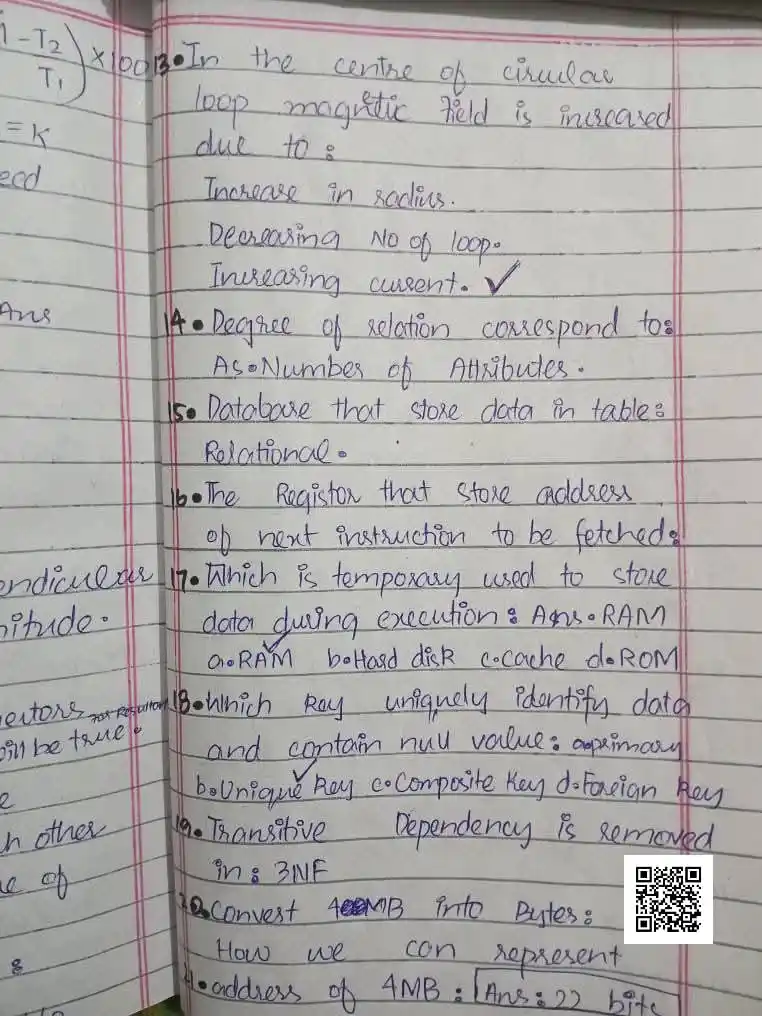 1 - T2
T1
×100
= K
eed
Ans
endicular
nitude.
ectors
will be true.
e
h other
e of
:
13. In the centre of circular
loop magnetic field is increased
due to :
Increase in radius.
Decreasing No of loop.
Increasing current. ✓
14. Degree of relation correspond to:
As. Number of Attributes.
15. Database that store data in table:
Relational.
16. The Register that store address
of next instruction to be fetched:
17. Which is temporary used to store
data during execution : Ans. RAM
a. RAM ✓ b. Hard disk c. cache d. ROM
18. Which Key uniquely identify data
and contain null value : a. primary
b. Unique ✓ Key c. Composite Key d. Foreian Key
19. Transitive Dependency is removed
in : 3NF
20. Convert 4 MB into Bytes :
How we can represent
21. address of 4MB : Ans : 22 bits